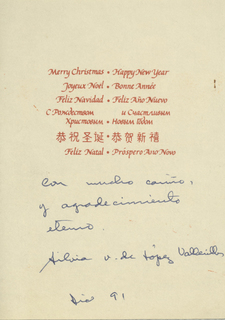 Merry Christmas • Happy New Year
Joyeux Noël • Bonne Année
Feliz Navidad • Feliz Año Nuevo
С Рождеством и Счастливым
Христовым • Новым Годом
恭祝圣诞 • 恭贺新禧
Feliz Natal • Próspero Ano Nôvo
Con mucho cariño,
y agradecimiento
eterno.
Silvia v. de López Vallecillos
Dic 91